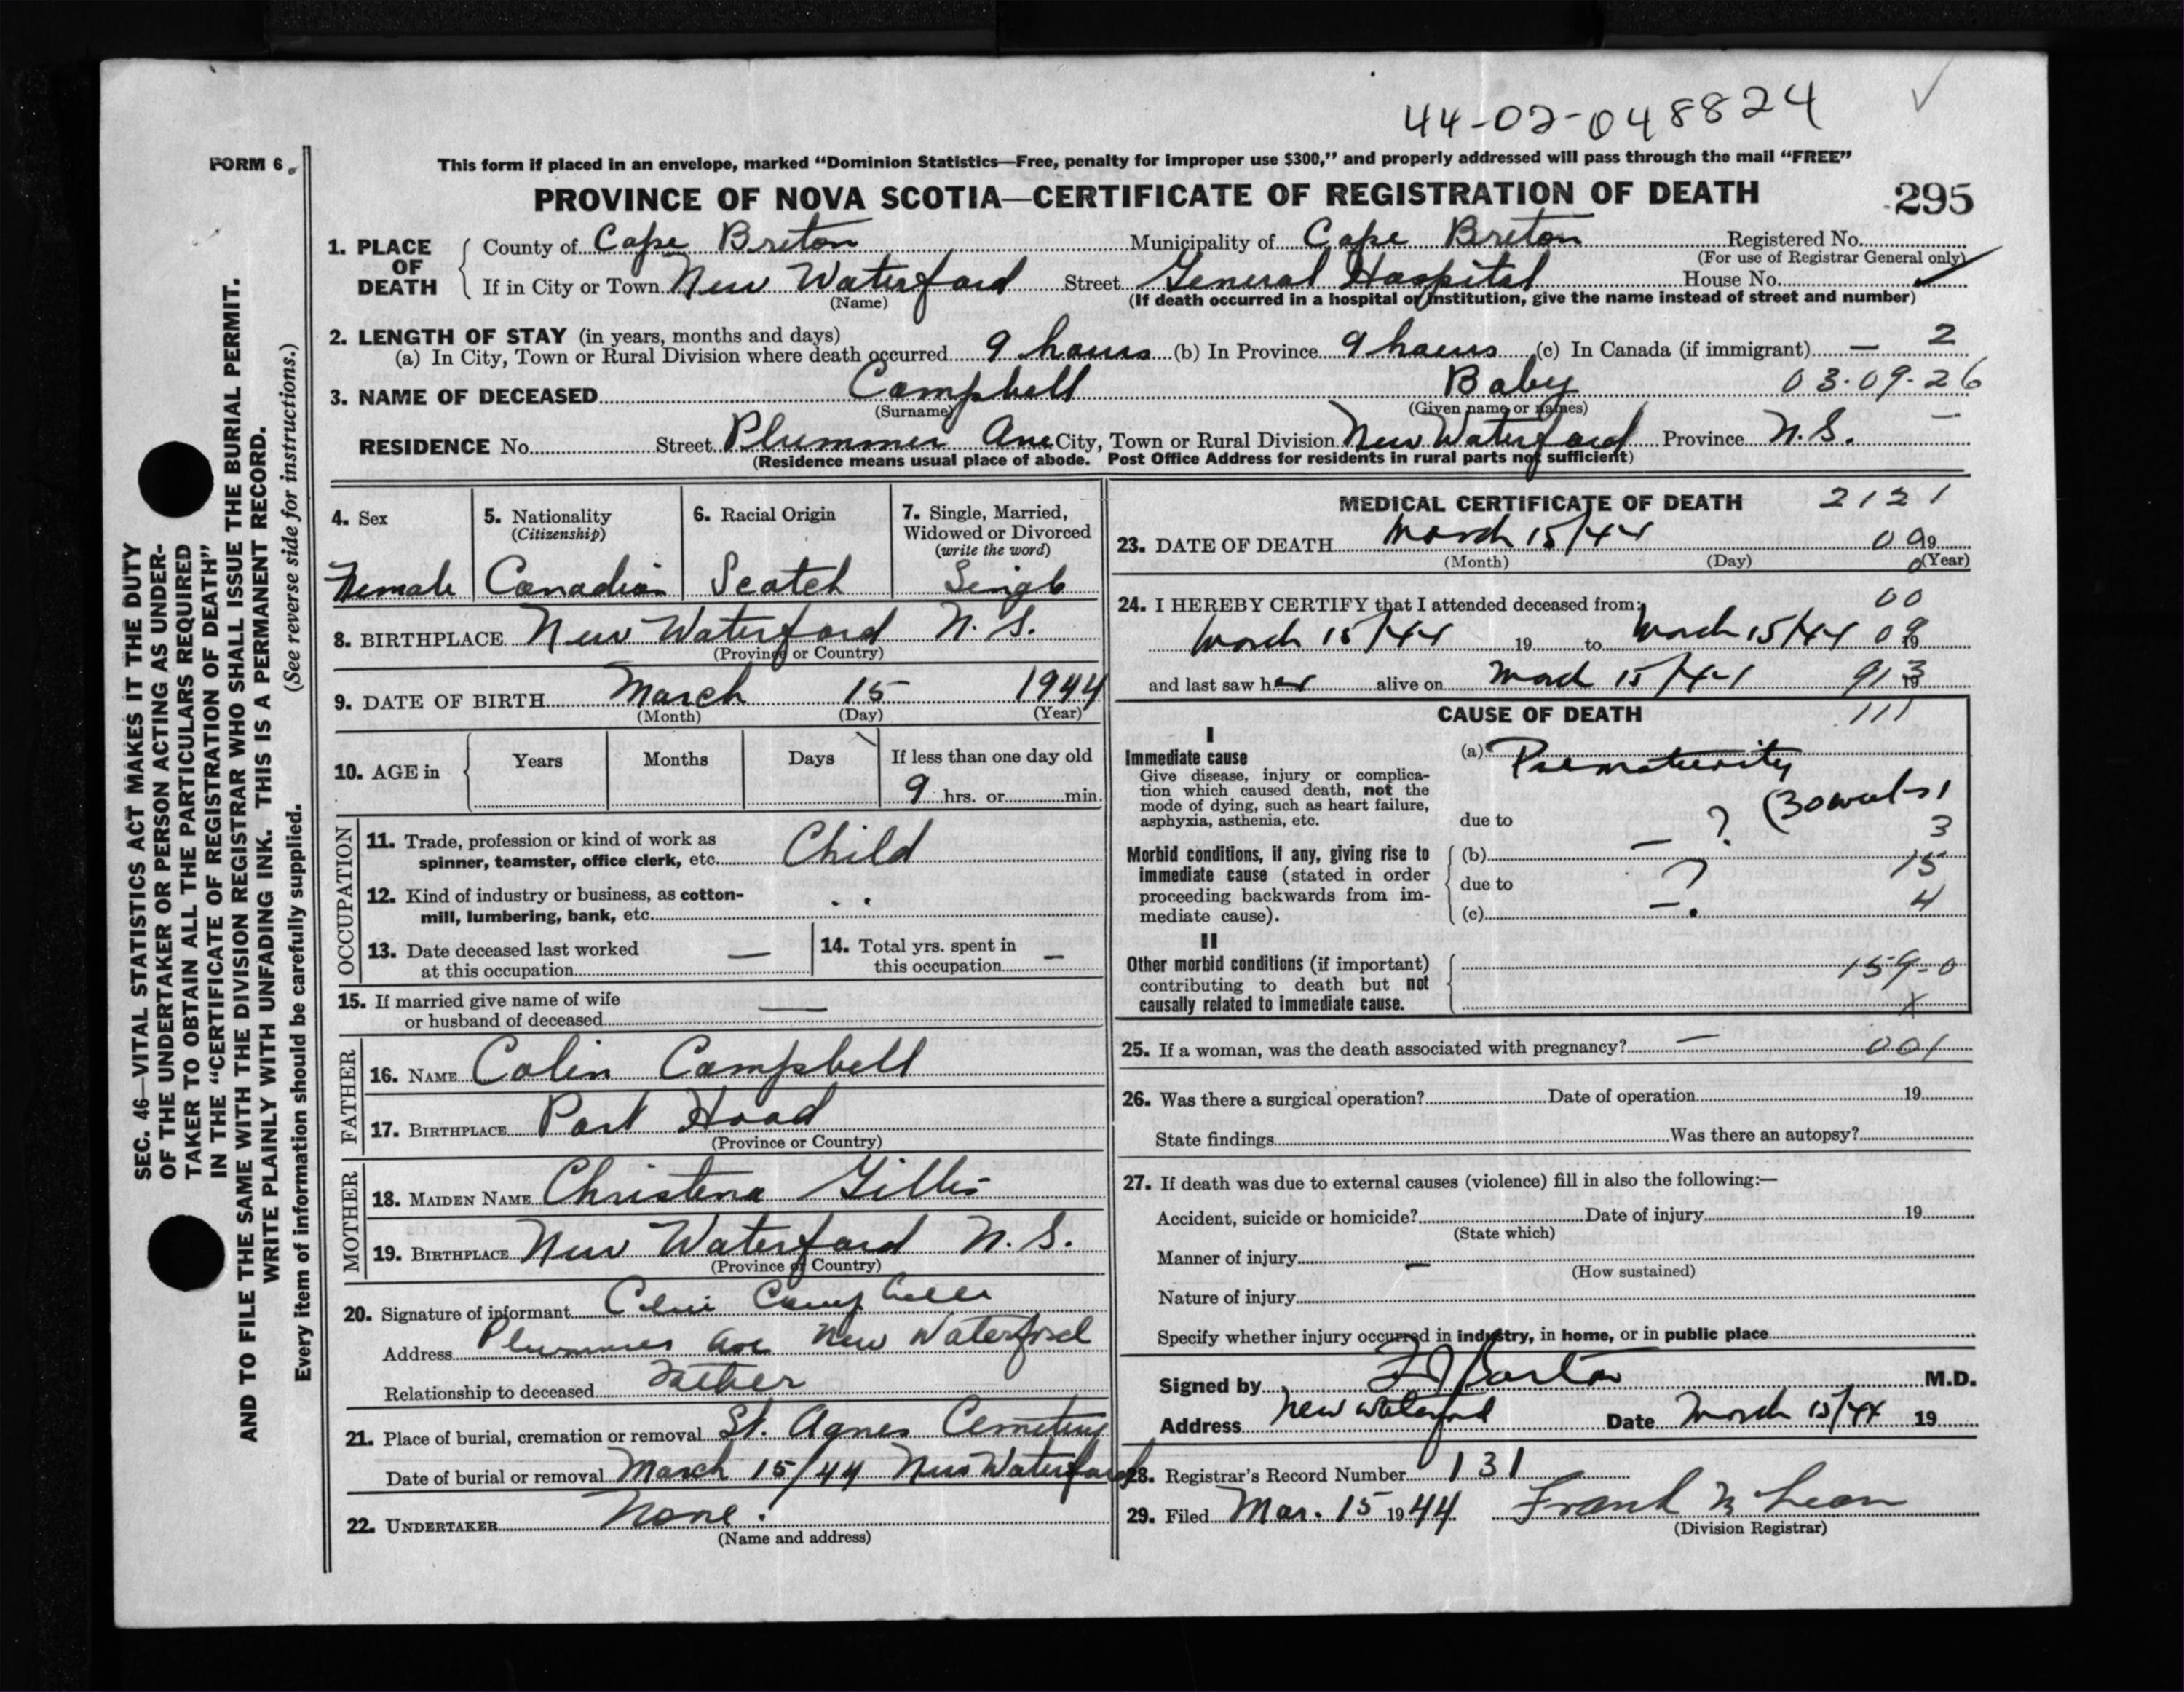 44-02-048824
FORM 6
This form if placed in an envelope, marked “Dominion Statistics—Free, penalty for improper use $300,” and properly addressed will pass through the mail “FREE”
PROVINCE OF NOVA SCOTIA—CERTIFICATE OF REGISTRATION OF DEATH 295
1. PLACE OF DEATH County of Cape Breton Municipality of Cape Breton Registered No.
(For use of Registrar General only)
If in City or Town New Waterford Street General Hospital House No.
(Name) (If death occurred in a hospital or institution, give the name instead of street and number)
2. LENGTH OF STAY (in years, months and days)
(a) In City, Town or Rural Division where death occurred 9 hours (b) In Province 9 hours (c) In Canada (if immigrant) — 2
3. NAME OF DECEASED Campbell Baby 03-09-26
(Surname) (Given name or names)
RESIDENCE No. Street Plummer Ave City, Town or Rural Division New Waterford Province N.S. —
(Residence means usual place of abode. Post Office Address for residents in rural parts not sufficient)
4. Sex
Female
5. Nationality
(Citizenship)
Canadian
6. Racial Origin
Scotch
7. Single, Married,
Widowed or Divorced
(write the word)
Single
8. BIRTHPLACE New Waterford N.S.
(Province or Country)
9. DATE OF BIRTH March 15 1944
(Month) (Day) (Year)
10. AGE in Years Months Days If less than one day old
9 hrs. or min.
OCCUPATION
11. Trade, profession or kind of work as
spinner, teamster, office clerk, etc. Child
12. Kind of industry or business, as cotton-
mill, lumbering, bank, etc. . .
13. Date deceased last worked
at this occupation —
14. Total yrs. spent in
this occupation —
15. If married give name of wife
or husband of deceased —
FATHER
16. NAME Colin Campbell
17. BIRTHPLACE Port Hood
(Province or Country)
MOTHER
18. MAIDEN NAME Christena Gillis
19. BIRTHPLACE New Waterford N.S.
(Province or Country)
20. Signature of informant Colin Campbell
Address Plummer Ave New Waterford
Relationship to deceased Father
21. Place of burial, cremation or removal St. Agnes Cemetery
Date of burial or removal March 15/44 New Waterford
22. UNDERTAKER None.
(Name and address)
MEDICAL CERTIFICATE OF DEATH 2121
23. DATE OF DEATH March 15/44 09 19
(Month) (Day) (Year)
24. I HEREBY CERTIFY that I attended deceased from: 00
March 15/44 19 to March 15/44 09 19
and last saw her alive on March 15/44 913 19
CAUSE OF DEATH 111
I
Immediate cause
Give disease, injury or complica-
tion which caused death, not the
mode of dying, such as heart failure,
asphyxia, asthenia, etc.
(a) Prematurity
(30 weeks)
due to — ? 3
Morbid conditions, if any, giving rise to
immediate cause (stated in order
proceeding backwards from im-
mediate cause).
(b) 15
due to ?
(c) —. 4
II
Other morbid conditions (if important)
contributing to death but not
causally related to immediate cause.
159-0
X
25. If a woman, was the death associated with pregnancy? — 001
26. Was there a surgical operation? Date of operation 19
State findings Was there an autopsy?
27. If death was due to external causes (violence) fill in also the following:—
Accident, suicide or homicide? Date of injury 19
(State which)
Manner of injury —
(How sustained)
Nature of injury
Specify whether injury occurred in industry, in home, or in public place
Signed by M.D.
Address New Waterford Date March 15/44 19
28. Registrar's Record Number 131
29. Filed Mar. 15 1944 Frank McLean
(Division Registrar)
SEC. 46—VITAL STATISTICS ACT MAKES IT THE DUTY
OF THE UNDERTAKER OR PERSON ACTING AS UNDER-
TAKER TO OBTAIN ALL THE PARTICULARS REQUIRED
IN THE “CERTIFICATE OF REGISTRATION OF DEATH”
AND TO FILE THE SAME WITH THE DIVISION REGISTRAR WHO SHALL ISSUE THE BURIAL PERMIT.
WRITE PLAINLY WITH UNFADING INK. THIS IS A PERMANENT RECORD.
Every item of information should be carefully supplied. (See reverse side for instructions.)